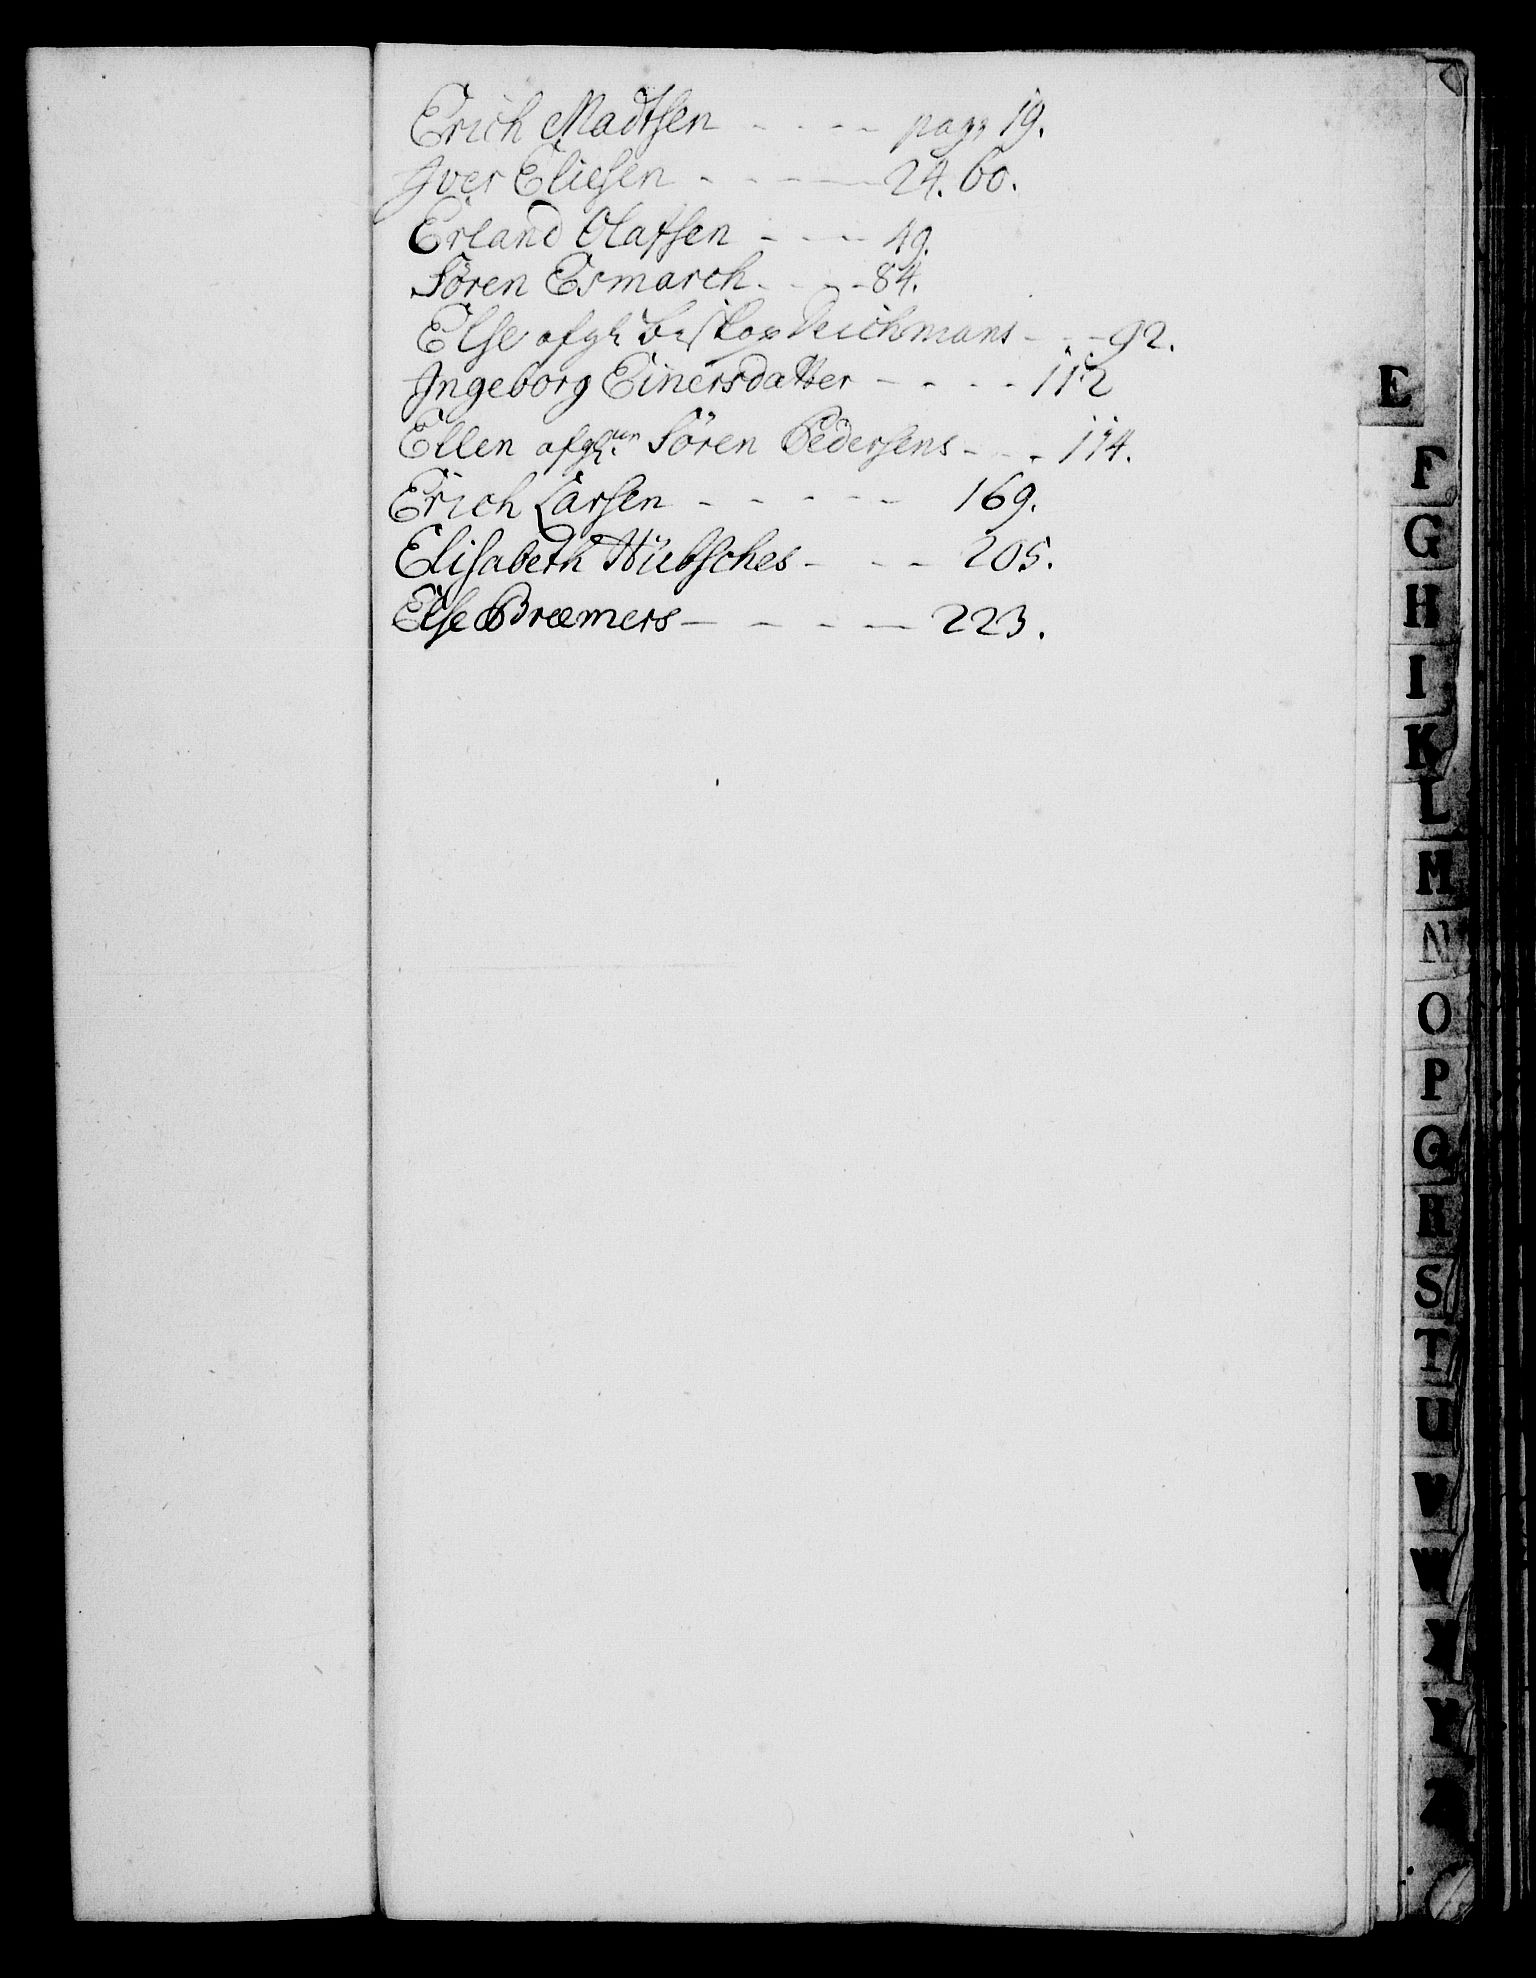 Erich Madtsen - - - - pag: 19.
Iver Eliesen - - - - 24. 60.
Erland Olafsen - - - - 49.
Sören Esmarch - - - - 84.
Else afg: biskop Deichmans - - - 92.
Ingeborg Einersdatter - - - - 112
Ellen afg: Sören Pedersens - - - 114.
Erich Larsen - - - - - 169.
Elisabeth Hübsches - - - 205.
Else Bræmers - - - - 223.
E
F
G
H
I
K
L
M
N
O
P
Q
R
S
T
U
V
W
X
Y
Z